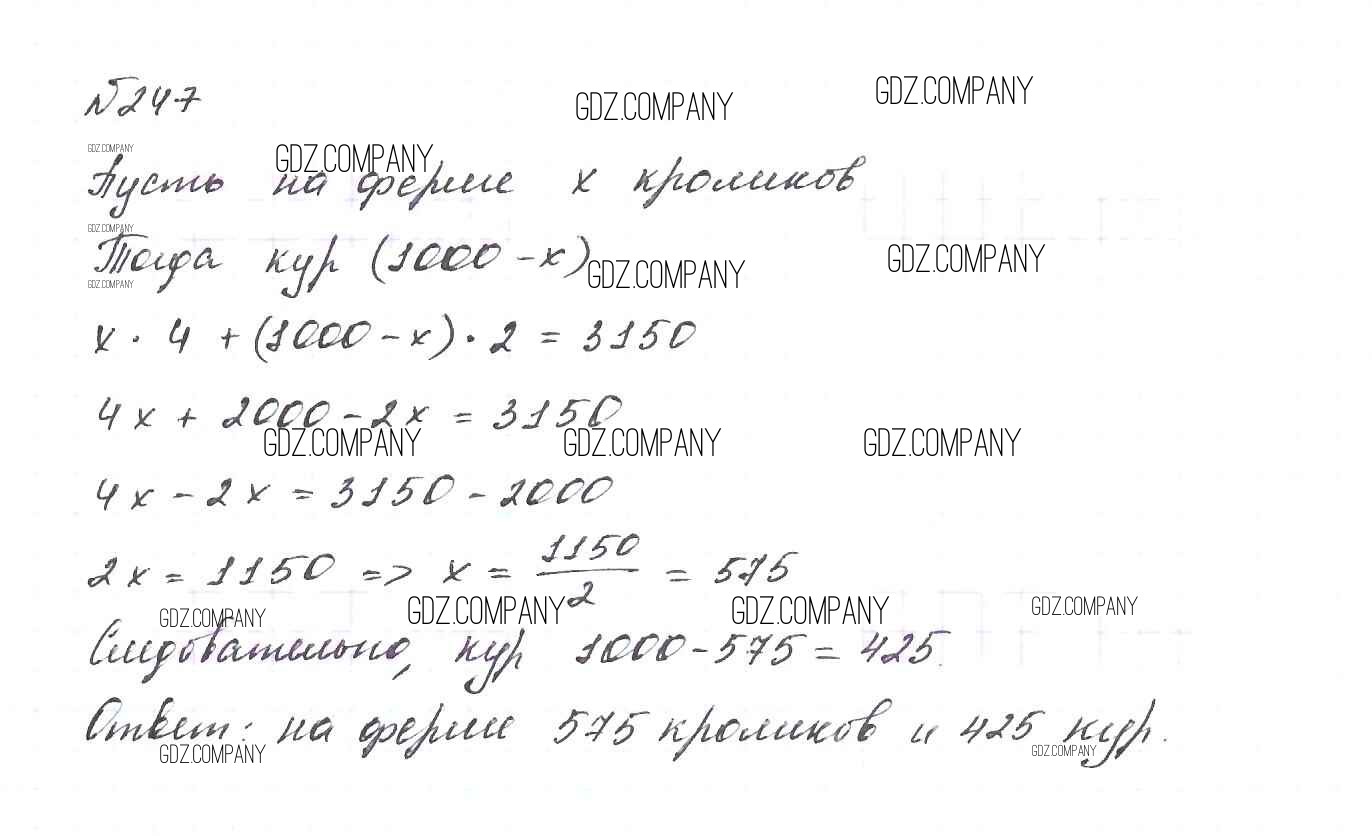 №247
GDZ.COMPANY
GDZ.COMPANY
GDZ.COMPANY
GDZ.COMPANY
Пусть на ферме x кроликов
GDZ.COMPANY
Тогда кур (1000 - x)
GDZ.COMPANY
GDZ.COMPANY
GDZ.COMPANY
x · 4 + (1000 - x) · 2 = 3150
4x + 2000 - 2x = 3150
GDZ.COMPANY
GDZ.COMPANY
GDZ.COMPANY
4x - 2x = 3150 - 2000
2x = 1150 => x = 1150/2 = 575
GDZ.COMPANY
GDZ.COMPANY
GDZ.COMPANY
GDZ.COMPANY
Следовательно, кур 1000 - 575 = 425.
Ответ: на ферме 575 кроликов и 425 кур.
GDZ.COMPANY
GDZ.COMPANY